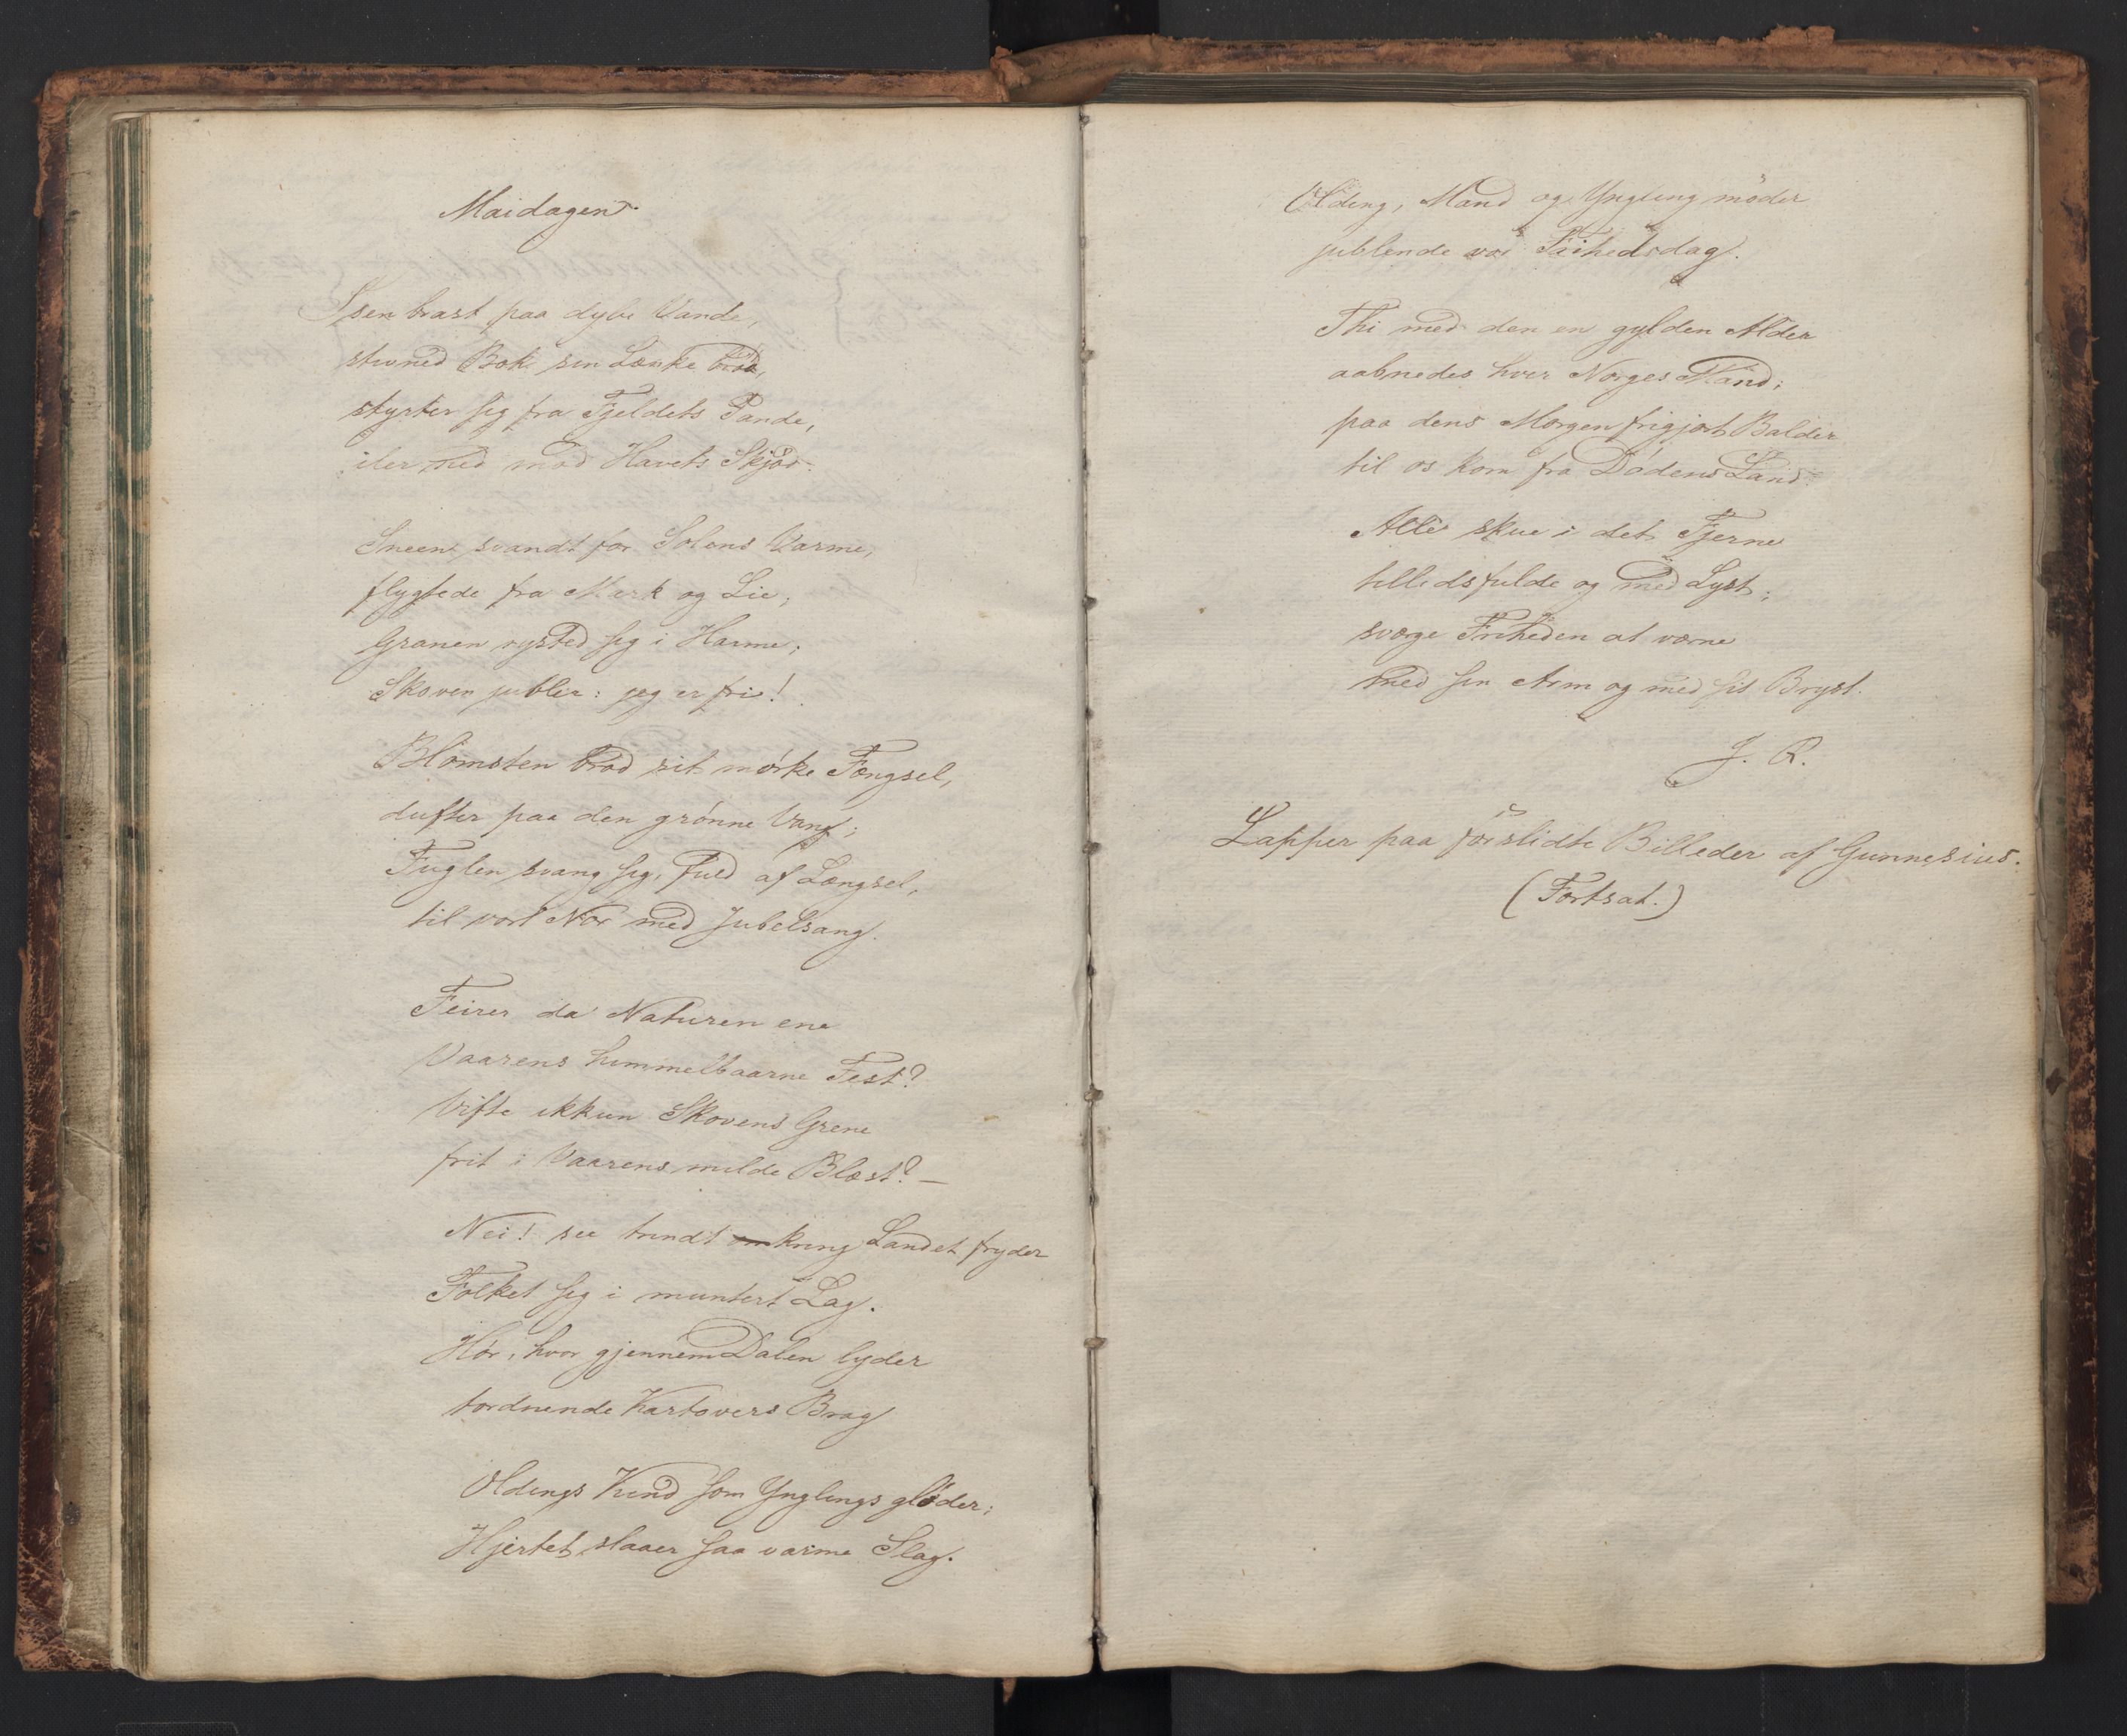 Maidagen.
Isen brast paa dybe Vande,
stivned Bæk sin Lænke brød,
styrter sig fra Fjeldets Pande,
iler ned mod Havets Skjød.
Sneen svandt for Solens Varme,
flygtede fra Mark og Lie;
Granen rysted sig i Harme;
Skoven jubler: jeg er fri!
Blomsten brød sit mørke Fængsel,
dufter paa den grønne Vang;
Fuglen svang sig, fuld af Længsel,
til vort Nor med Jubelsang.
Feirer da Naturen ene
Vaarens himmelbaarne Fest?
Vifte ikkun Skovens Grene
frit i Vaarens milde Blæst? –
Nei! see trindt omkring Landet fryder
Folket sig i muntert Lag.
Hør, hvor gjennem Dalen lyder
tordnende Kartovers Brag
Oldings Kind som Ynglings gløder;
Hjertet slaaer saa varme Slag.
Olding, Mand og Yngling møder
jublende vor Frihedsdag.
Thi med den en gylden Alder
aabnedes hver Norges Mand;
paa dens Morgen frigjort Balder
til os kom fra Dødens Land.
Alle skue i det Fjerne
tillidsfulde og med Lyst;
sværge Friheden at værne
med sin Arm og med sit Bryst.
J. R.
Lapper paa forslidte Billeder af Gunnesius.
(Fortsat.)